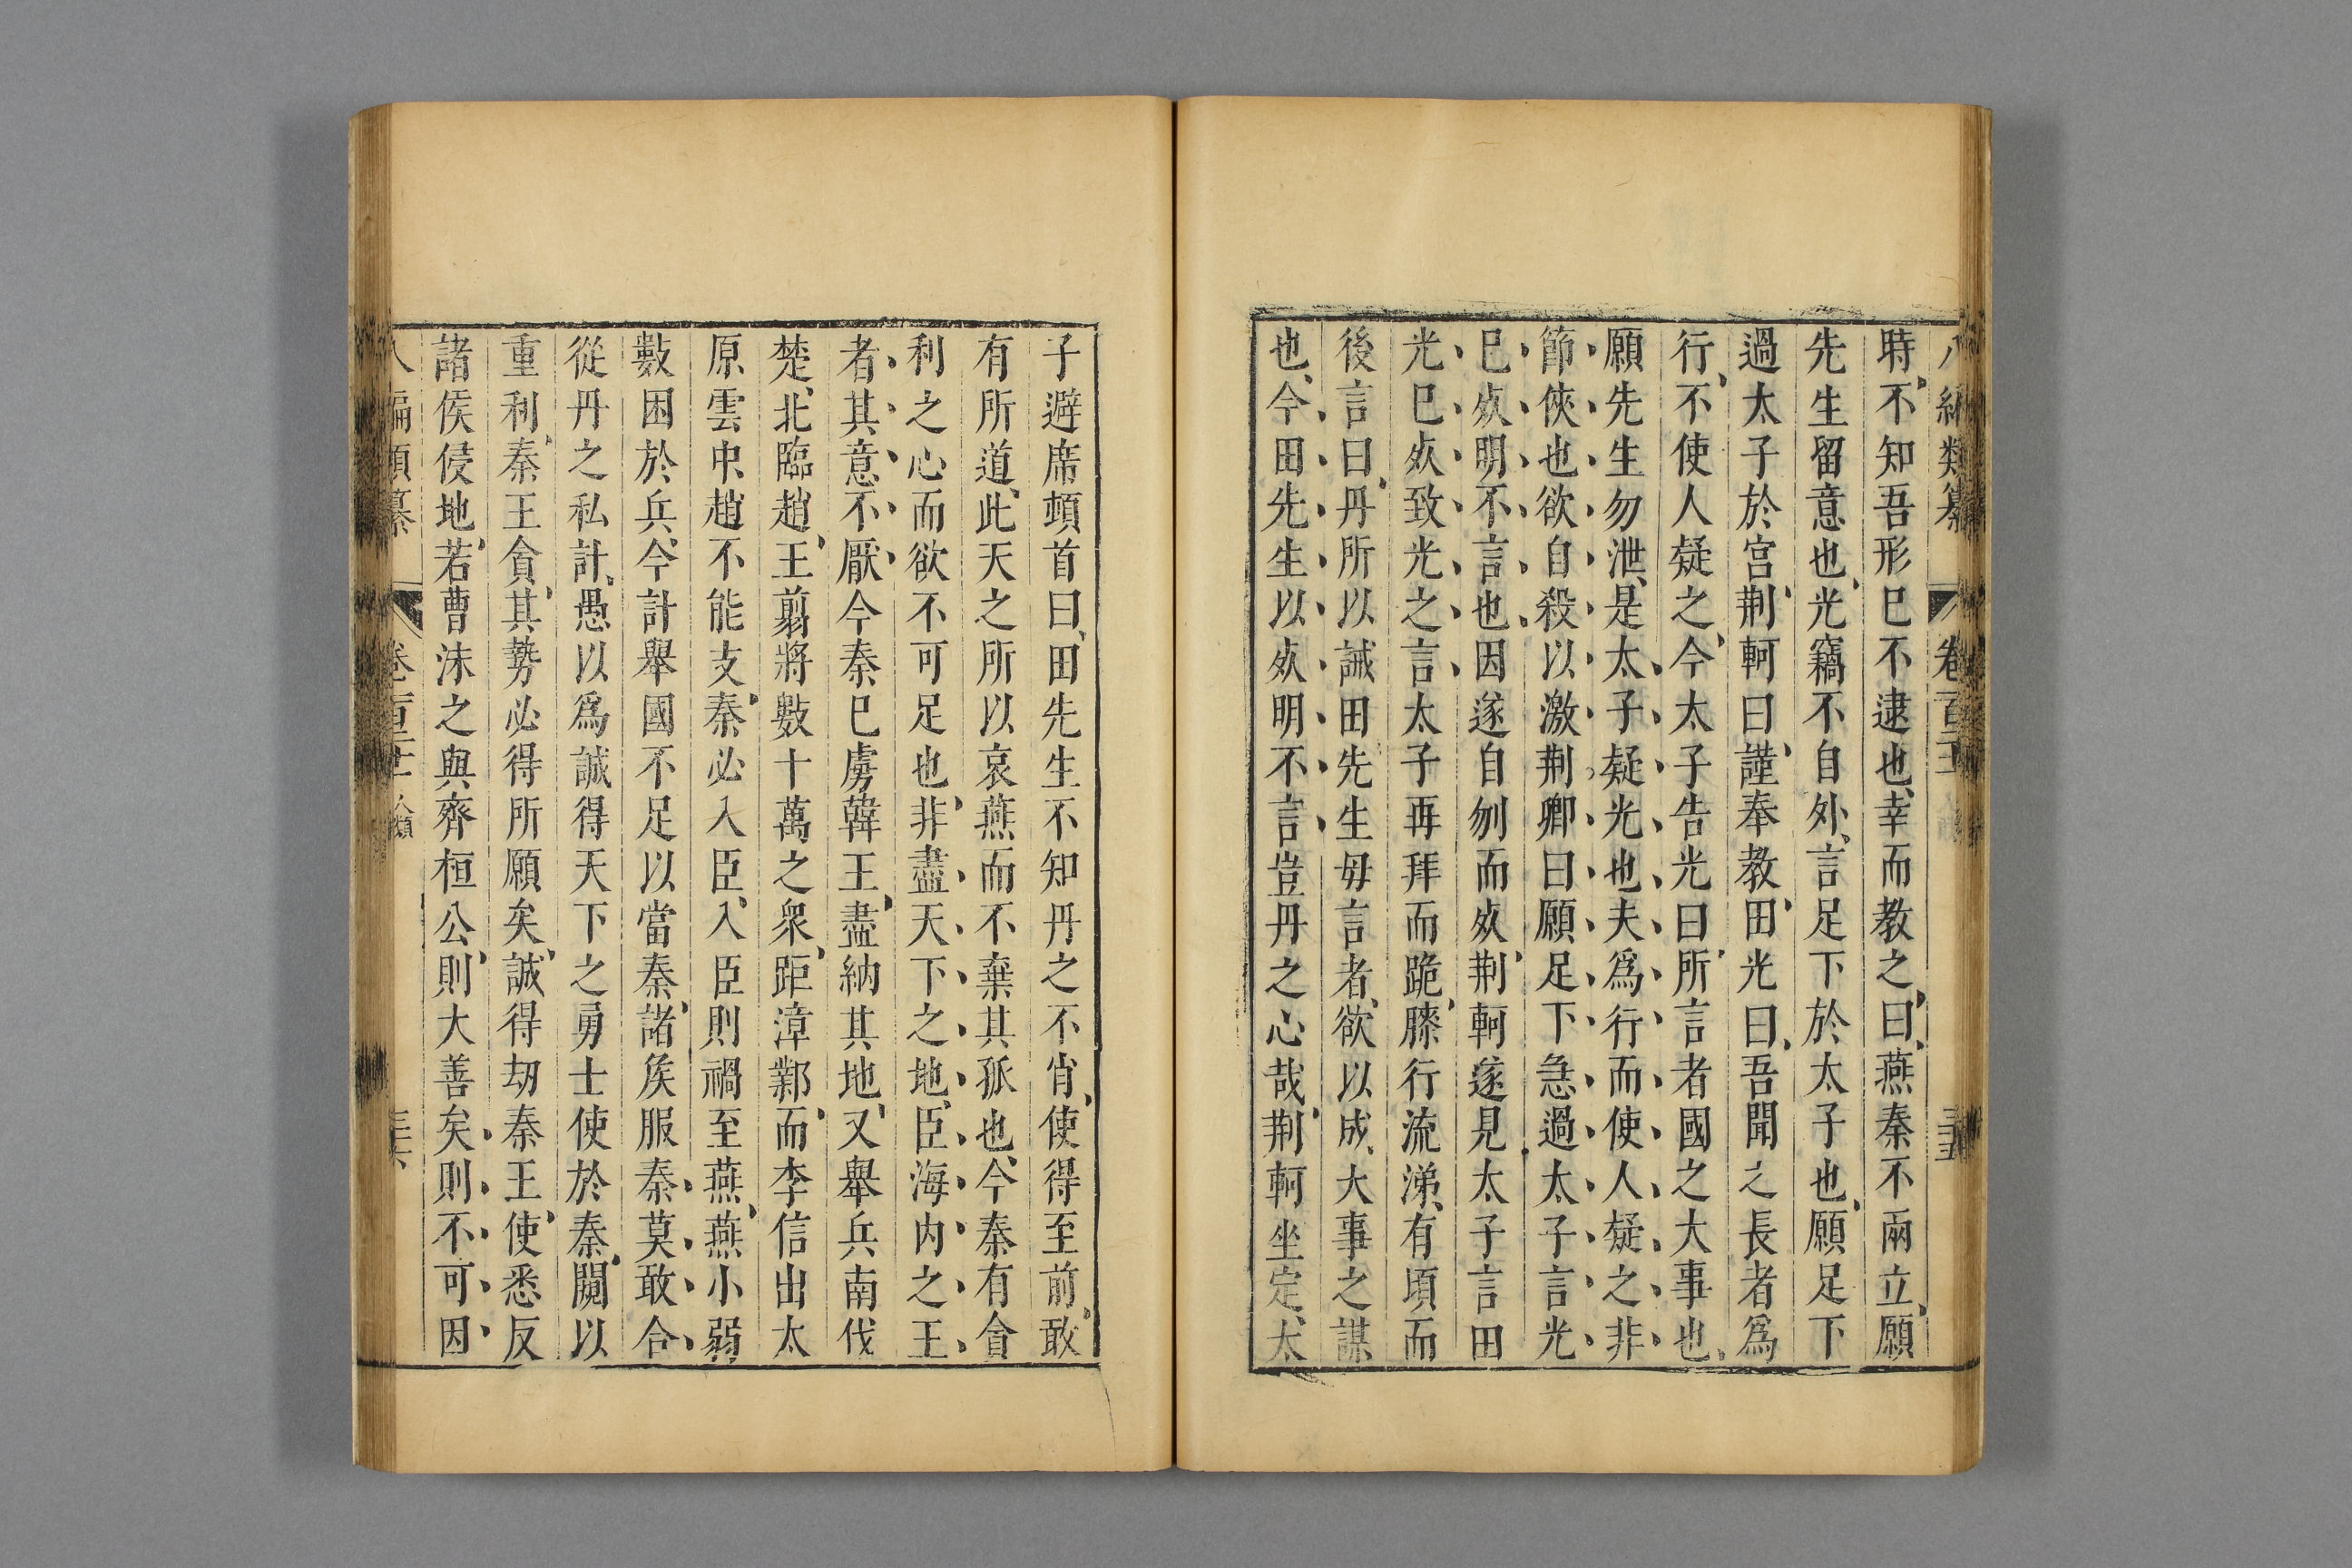 編類纂 卷百三 三十五
時不知吾形巳不逮也幸而教之曰燕秦不兩立願
先生留意也光竊不自外言足下於太子也願足下
過太子於宮荆軻曰謹奉教田光曰吾聞之長者爲
行不使人疑之今太子告光曰所言者國之大事也
願先生勿泄是太子疑光也夫爲行而使人疑之非
節俠也欲自殺以激荆卿曰願足下急過太子言光
巳㱙明不言也因遂自刎而㱙荆軻遂見太子言田
光巳㱙致光之言太子再拜而跪膝行流涕有頃而
後言曰丹所以誡田先生毋言者欲以成大事之謀
也今田先生以㱙明不言豈丹之心哉荆軻坐定太
子避席頓首曰田先生不知丹之不肖使得至前敢
有所道此天之所以哀燕而不棄其孤也今秦有貪
利之心而欲不可足也非盡天下之地臣海内之王
者其意不厭今秦巳虜韓王盡納其地又舉兵南伐
楚北臨趙王翦將數十萬之衆距漳鄴而李信出太
原雲中趙不能支秦必入臣入臣則禍至燕燕小弱
數困於兵今計舉國不足以當秦諸侯服秦莫敢合
從丹之私計愚以爲誠得天下之勇士使於秦闚以
重利秦王貪其勢必得所願矣誠得劫秦王使悉反
諸侯侵地若曹沫之與齊桓公則大善矣則不可因
八編類纂 卷百三十二 三十六